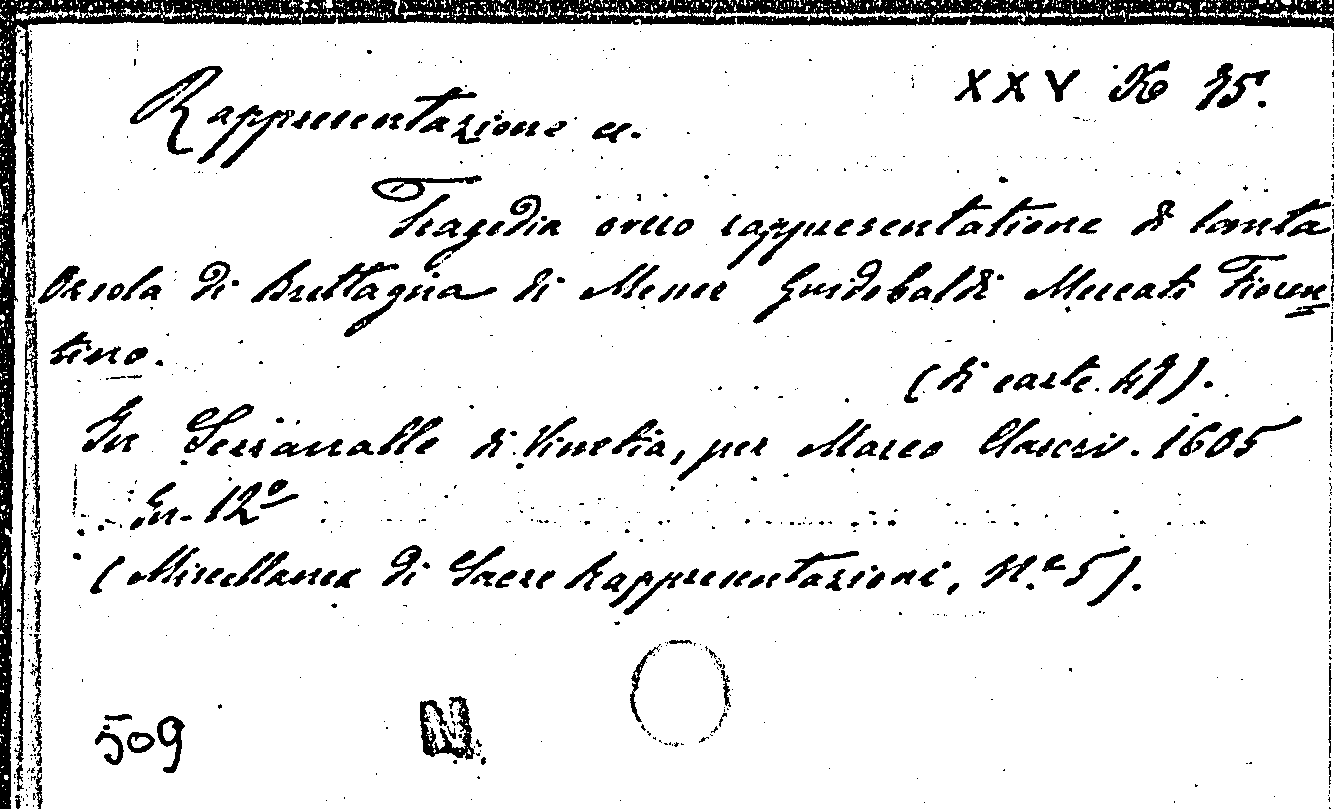 XXV K 75.
Rappresentazione ec.
Tragedia overo rappresentatione di Santa
Orsola di Brettagna di Messer Guidobaldi Mercati Fioren
tino.
(di carte 49).
In Serravalle di Vinetia, per Marco Claseri. 1605
In-12º
(Miscellanea di Sacre Rappresentazioni, N.º 5).
509
N